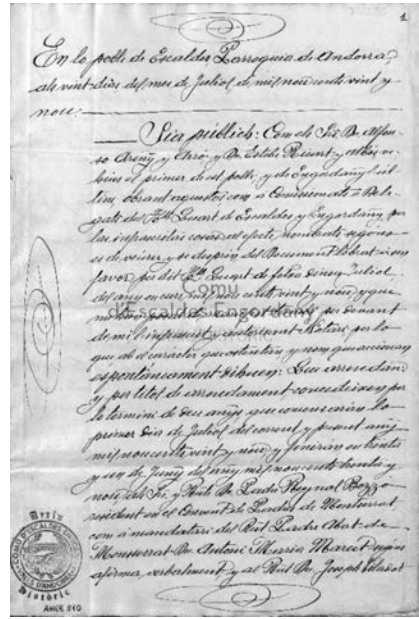 1
En lo poble de Escaldes Parroquia de Andorra,
als vint dias del mes de Juliol de mil nou cents vint y
nou.
Sia públich: Com els Srs Dn Alfon-
so Areny y Dn Esteve Picart y ve-
hins el primer de est poble y de Engordany l'úl-
tim, obrant aquestos com a Comisionats o Dele-
gats del Ble Quart de Escaldes y Engordany per
las infrascritas cosas al efecte nombrats segons
es de veurer y se desprèn del Document librat a son
favor per dit Ble Quart de fetxa Juliol
del any en curs mil nou cents vint y nou, y que
per devant
de mi l'infrascrit y autorisant Notari; per lo
que al el caracter que ostentan y nom que accionan
espontáneament diheuen: Que arrendan
y per titol de arrendament concedeixen per
lo termini de deu anys que comensarán lo
primer dia de Juliol del corrent y present any
mil nou cents vint y nou y finirán en trenta
y un de Juny del any mil nou cents trenta y
nou, al Sr. y Rnt Dn Padre Reynal Bozzo
resident en el Convent de Padres de Montserrat
com a mandatari del Rnt Padre Abat de
Monserrat Dn Antoni Maria Marcet segons
afirma verbalment, y al Rnt Dn Joseph
Comú
d'Escaldes-Engordany
Arxiu
COMÚ D'ESCALDES-ENGORDANY
PRINCIPAT D'ANDORRA
Històric
AHCE 840